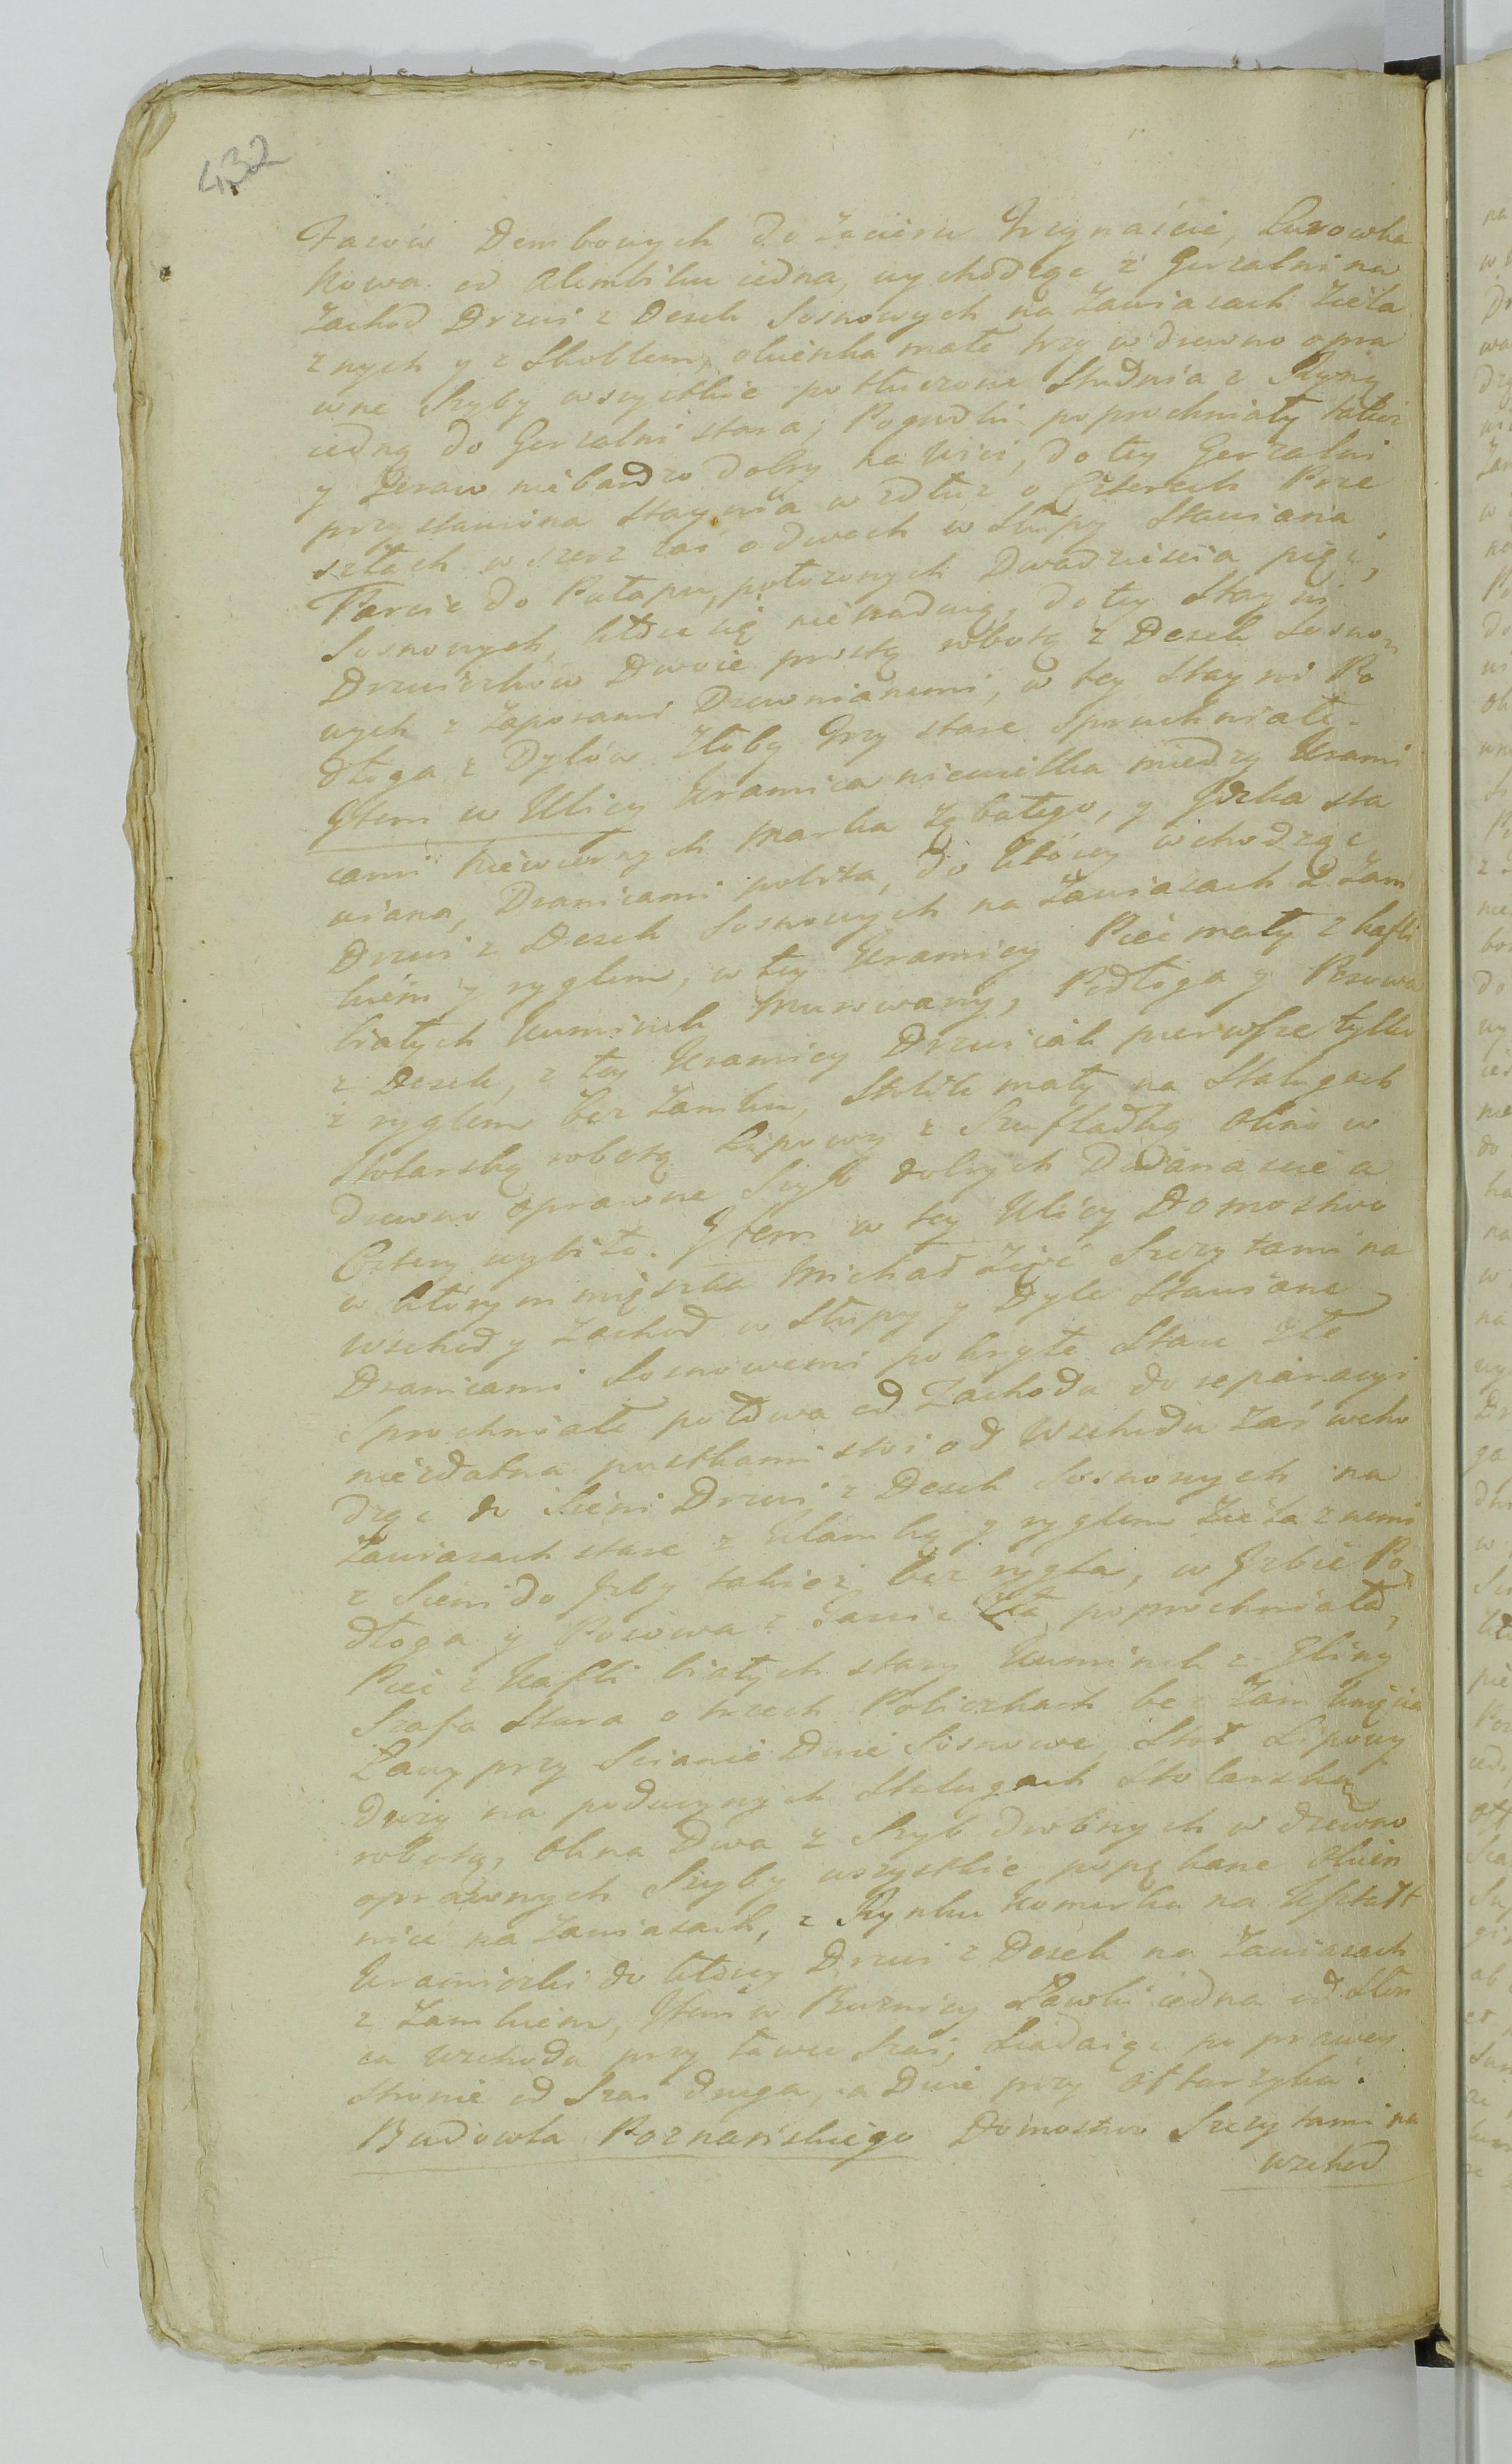 432
Fasów Dembowych do Zacieru Trzynaście, Lurowka
Nowa od Alembiku iedna, wychodząc z Gorzalni na
Zachod Drzwi z Desek Sosnowych na Zawiasach Żela
znych y z Skoblem, okienka małe trzy w drewno opra
wne Szyby wszystkie potłuczone Studnia z Rynną
iedną do Gorzalni stara; Pogrudki poprochniały takoż
y Żeraw niebardzo dobry na Kiiu, do tey Gorzalni
przystawiona Staynia w zdłuż o Czterech Prze
szłach w szerz zaś o dwoch w Słupy Stawiana
Tarcic do Pułapu, położonych Dwadzieścia pięć,
Sosnowych, które się nienaduią, do tey Stayni
Drzwiczków Dwoie prostą robotą z Desek Sosno
wych z Zaporami Drewnianemi, w tey Stayni Po
dłoga z Dylów Żłoby Trzy stare Spruchniałe.
Item w Ulicy Kramica niewielka między Krami
cami Niewiernych Marka Zębatego, y Jcka sta
wiana, Dranicami pobita, do Którey wchodząc
Drzwi z Desek Sosnowych na Zawiasach z Zam
kiem y ryglem, w tey Kramicy Piec mały z kafli
białych Kuminek Murowany, Podłoga y Posowa
z Desek, z tey Kramicy Drzwi iak pierwsze tylko
z ryglem bez Zamku, Stolik mały na Stalugach
Stolarską robotą Lipowy z Szufladką Okno w
drewno oprawne Szyb dobrych Dwanaście a
Cztery wybite. Item w tey Ulicy Domostwo
w którym mięszka Michał Żyć Szczytami na
Wschod y Zachod w Słupy y Dyle Stawiane
Dranicami Sosnowemi pokryte Stare Złe
Sprochniałe połowa od Zachodu do reparacyi
niezdatna pustkami stoi od Wschodu zaś wcho
dząc do Sieni Drzwi z Desek Sosnowych na
Zawiasach stare z Klamką y ryglem Żelaznemi
z Sieni do Izby takież bez rygla, w Izbie Po
dłoga y Posowa z Tarcic Zła poprochniała,
Piec z Kafli białych stary Kuminek z Gliny
Szafa Stara o trzech Policzkach bez Zamknięcia
Ławy przy Scianie Dwie Sosnowe, Stoł Lipowy
duży na poducznych Stalugach Stolarską
robotą, Okna Dwa z Szyb drobnych w drzewno
oprawnych Szyby wszystkie popękane Okien
nice na Zawiasach, z Rynku Komorka na Kształt
Kramiczki do którey Drzwi z Desek na Zawiasach
z Zamkiem, Item w Bużnicy Ławki iedna od Słoń
ca Wschodu przy ławce Szai, Siadaiąc po prawey
stronie od Szai druga, a Dwie przy Ołtarzyku.
Budowla Poznańskiego Domostwo Szczytami na
wschod